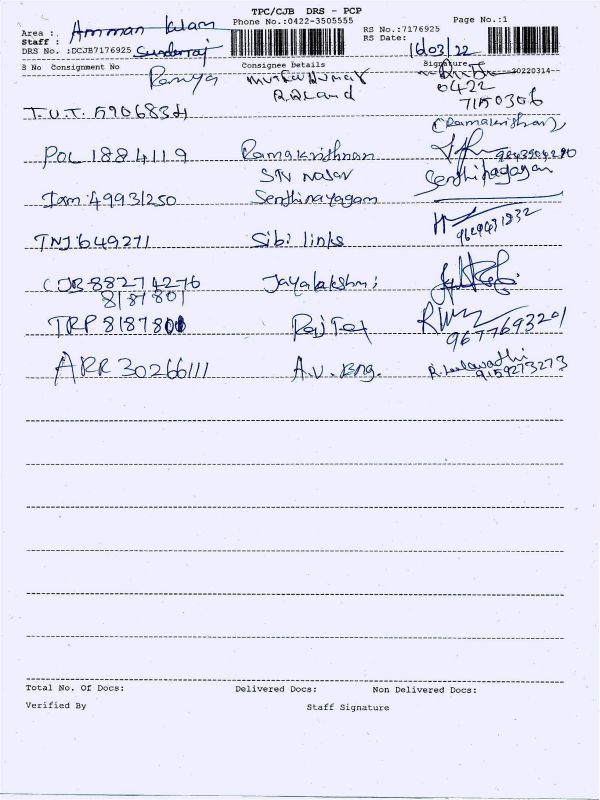 TPC/CJB DRS - PCP
Phone No.:0422-3505555 Page No.:1
Area : Amman kulam
RS No.:7176925
Staff : Sunderraj
RS Date: 16/03/22
DRS No. :DCJB7176925
S No Consignment No Consignee Details Signature 20220314
Ramya Muthukumar
R.R.Land 0422
T.U.T. 5906834 7150306
(Ramakrishnan)
POL 1884119 Ramakrishnan
STV nagar Senthinayagam
Iam 49931250 Senthinayagam
TNJ 649271 Sibi links 9629431832
CJB 88274276 Jayalakshmi
8187801
TRP 8187801 Raj Tex 9677693201
ARR 30266111 A.V. Eng. R.Leelavathi
9159273273
Total No. Of Docs: Delivered Docs: Non Delivered Docs:
Verified By Staff Signature